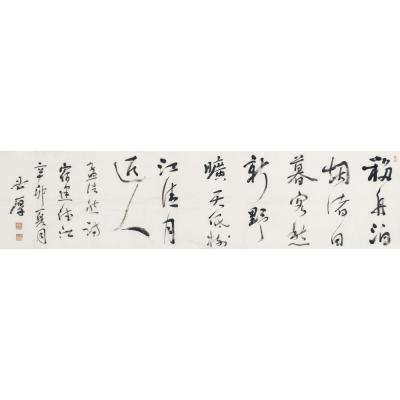 移舟泊
烟渚日
暮客愁
新野
曠天低樹
江清月
近人
孟浩然詩
宿建德江
辛卯夏月
厚